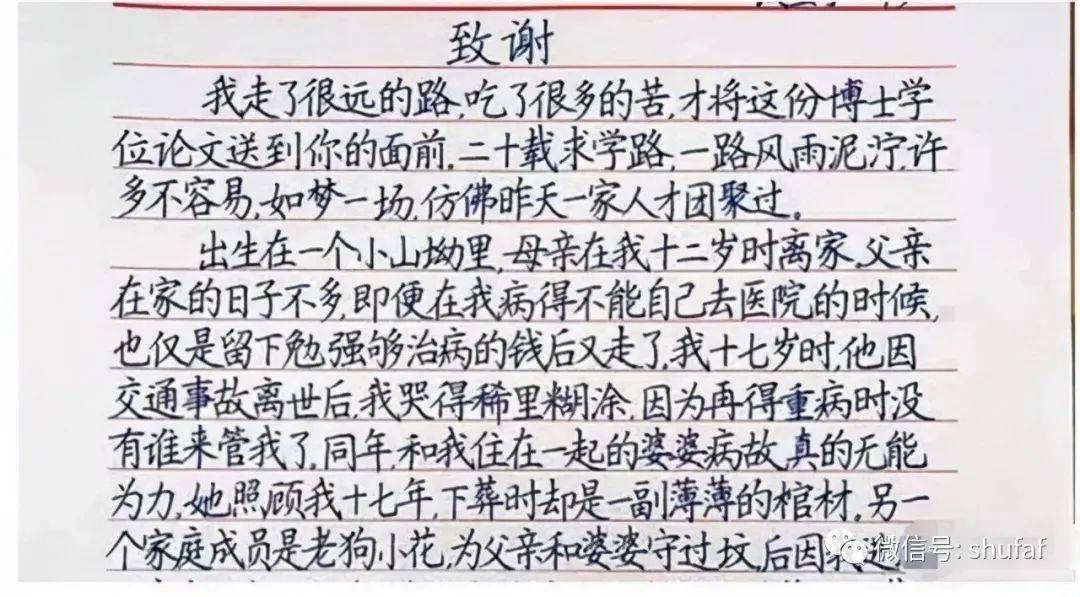 致谢
我走了很远的路,吃了很多的苦,才将这份博士学
位论文送到你的面前,二十载求学路,一路风雨泥泞,许
多不容易,如梦一场,仿佛昨天一家人才团聚过。
出生在一个小山坳里,母亲在我十二岁时离家,父亲
在家的日子不多,即便在我病得不能自己去医院的时候,
也仅是留下勉强够治病的钱后又走了,我十七岁时,他因
交通事故离世后,我哭得稀里糊涂,因为再得重病时没
有谁来管我了,同年,和我住在一起的婆婆病故,真的无能
为力,她照顾我十七年,下葬时却是一副薄薄的棺材,另一
个家庭成员是老狗小花,为父亲和婆婆守过坟,后因我
微信号: shufaf